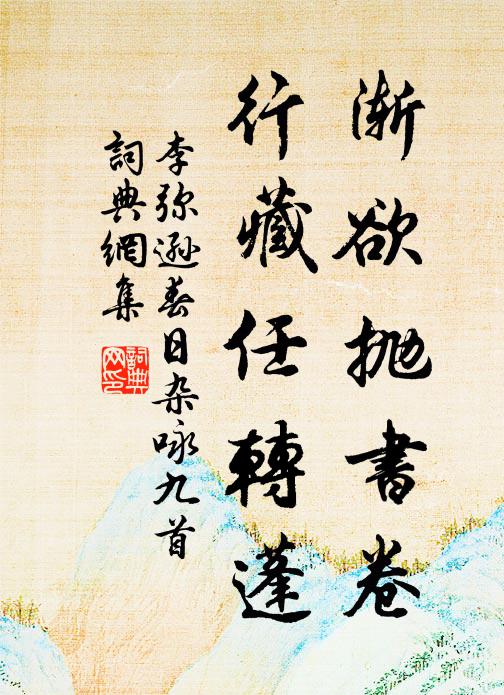 渐欲抛書卷
行藏任轉蓬
李弥遜春日杂咏九首
詞典網集
詞典網印